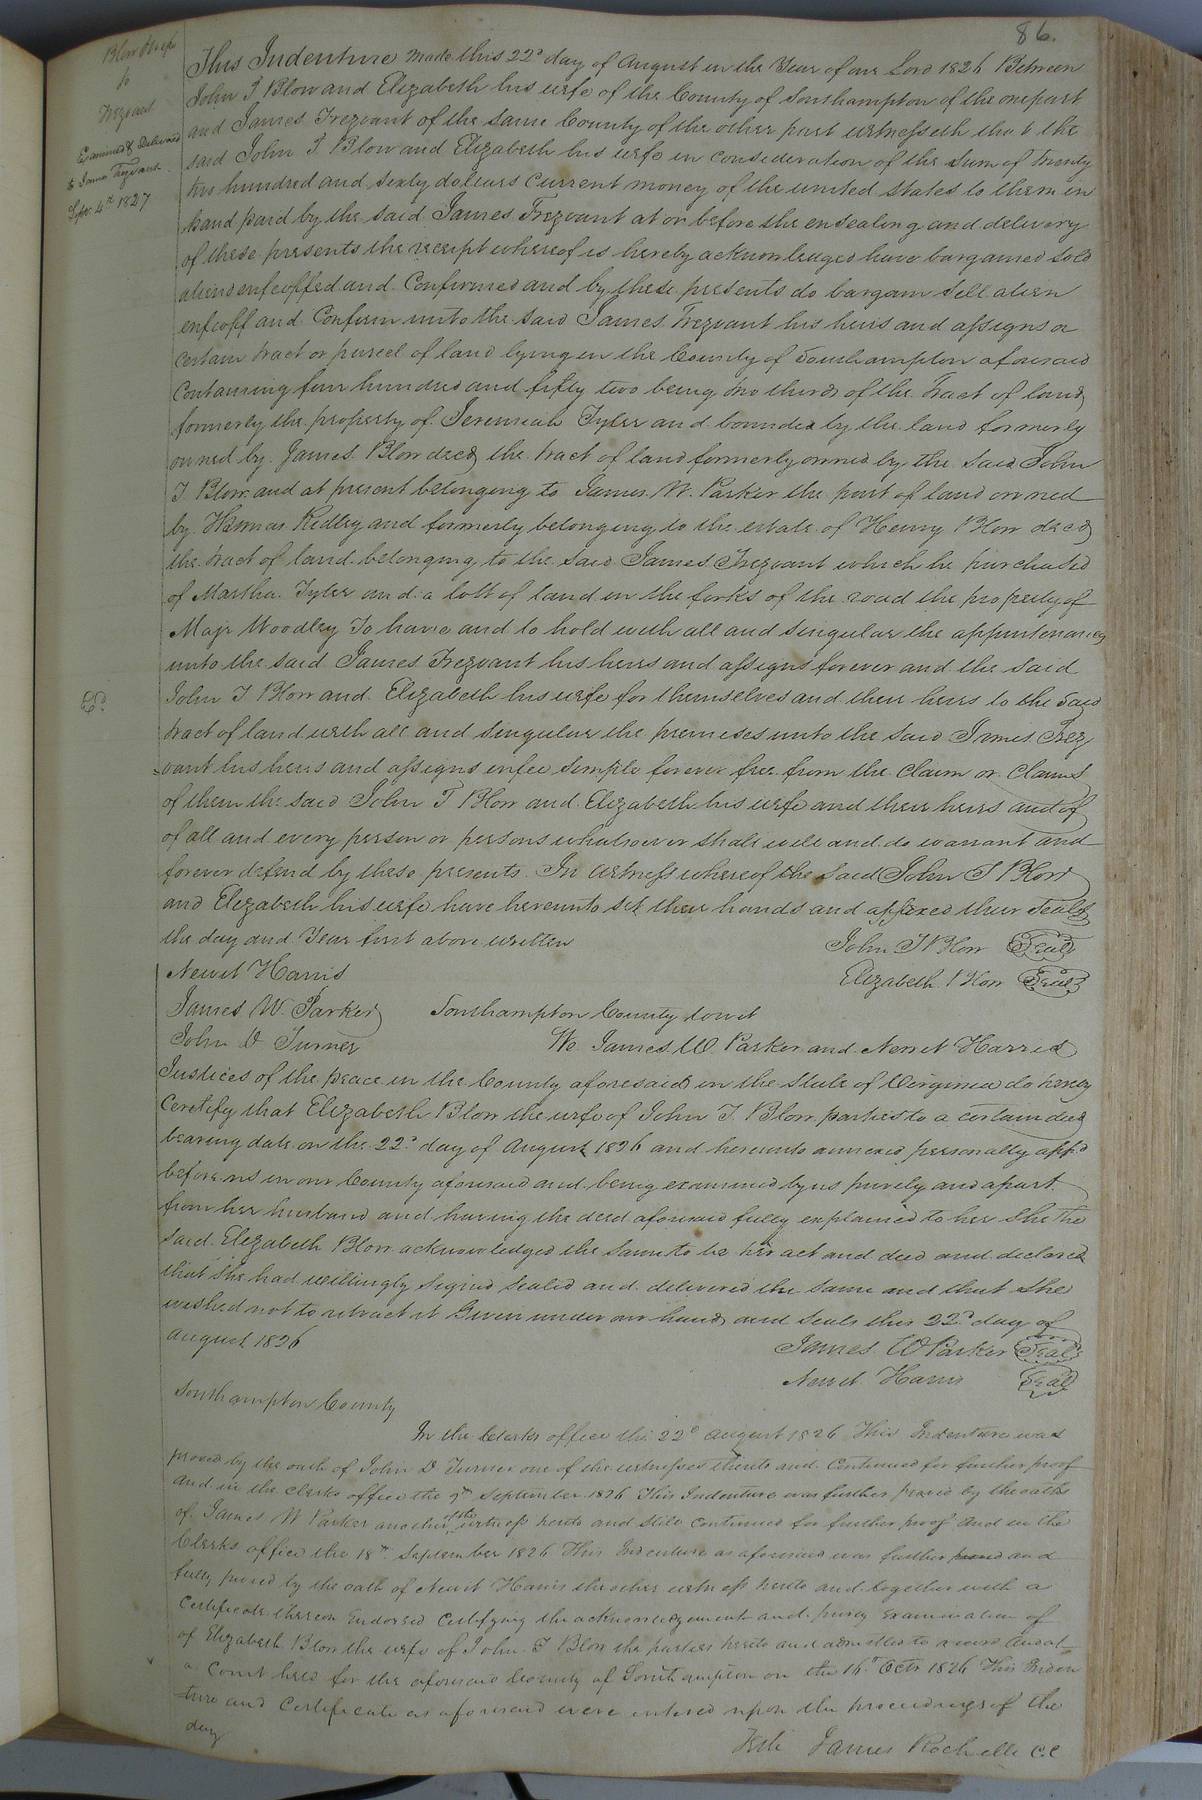 86.
Blow & wife
to
Trezvant
Examined & Delivered
to James Trezvant
Sepr. 4th 1827
This Indenture made this 22d day of August in the Year of our Lord 1826 Between
John T Blow and Elizabeth his wife of the County of Southampton of the one part
and James Trezvant of the same County of the other part witnesseth that the
said John T. Blow and Elizabeth his wife in consideration of the Sum of twenty
two hundred and sixty dollars Current money of the united States to them in
hand paid by the said James Trezvant at or before the ensealing and delivery
of these presents the receipt whereof is hereby acknowledged have bargained sold
aliend enfeoffed and Confirmed and by these presents do bargain sell alien
enfeoff and Confirm unto the said James Trezvant his heirs and assigns a
certain tract or parcel of land lying in the County of Southampton aforesaid
Containing four hundred and fifty two being two thirds of the Tract of land
formerly the property of Jeremiah Tyler and bounded by the land formerly
owned by James Blow decd the tract of land formerly owned by the said John
T Blow and at present belonging to James W. Parker the part of land owned
by Thomas Ridley and formerly belonging to the estate of Henry Blow decd
the tract of land belonging to the said James Trezvant which he purchased
of Martha Tyler and a lott of land in the forks of the road the property of
Majr Woodley To have and to hold with all and singular the appurtenances
unto the said James Trezvant his heirs and assigns forever and the said
John T Blow and Elizabeth his wife for themselves and their heirs to the said
tract of land with all and singular the premises unto the said James Trez
=vant his heirs and assigns in fee simple forever free from the claim or claims
of them the said John T Blow and Elizabeth his wife and their heirs and of
of all and every person or persons whatsoever shall will and do warrant and
forever defend by these presents. In Witness whereof the said John T Blow
and Elizabeth his wife have hereunto set their hands and affixed their seals
the day and Year first above written
John T Blow Seal
Newit Harris
Elizabeth Blow Seal
James W. Parker
Southampton County towit
John D Turner
We James W Parker and Newit Harris
Justices of the peace in the County aforesaid in the State of Virginia do hereby
Certify that Elizabeth Blow the wife of John T. Blow parties to a certain deed
bearing date on the 22d day of August 1826 and hereunto annexed personally appd
before us in our County aforesaid and being examined by us privily and apart
from her husband and having the deed aforesaid fully explained to her She the
said Elizabeth Blow acknowledged the same to be her act and deed and declared
that she had willingly signed sealed and delivered the same and that she
wished not to retract it Given under our hands and Seals this 22d day of
August 1826
James W Parker Seal
Newit Harris Seal
Southampton County
In the Clerks office the 22d August 1826 This Indenture was
proved by the oath of John D Turner one of the witnesses thereto and Continued for further proof
And in the Clerks office the 9th September 1826 This Indenture was further proved by the oath
of James W Parker another of the witness hereto and still continued for further proof And in the
Clerks office the 18th September 1826 This Indenture as aforesaid was further proved and
fully proved by the oath of Newit Harris the other witness hereto and together with a
Certificate thereon Endorsed Certifying the acknowledgement and privy Examination of
of Elizabeth Blow the wife of John T Blow the parties hereto and admitted to record And at
a Court held for the aforesaid County of Southampton on the 16th Octr 1826 This Inden
ture and Certificate as aforesaid were entered upon the proceedings of the
day
Teste James Rochelle C.C